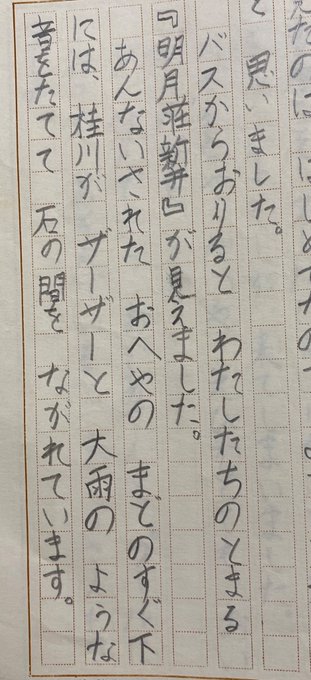 たのは はじめてなので
と 思いました。
バスからおりると わたしたちのとまる
『明月荘新井』が見えました。
あんないされた おへやの まどのすぐ下
には、桂川が ザーザーと 大雨の ような
音をたてて 石の間を ながれています。